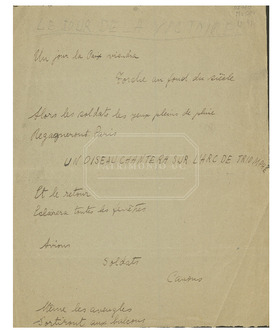 LE JOUR DE LA VICTOIRE
Un jour la Paix viendra
Torche au fond du siècle
Alors les soldats les yeux pleins de pluie
Regagneront Paris
UN OISEAU CHANTERA SUR L'ARC DE TRIOMPHE
Et le retour
Eclairera toutes les fenêtres
Avions
Soldats
Canons
Même les aveugles
Sortiront aux balcons